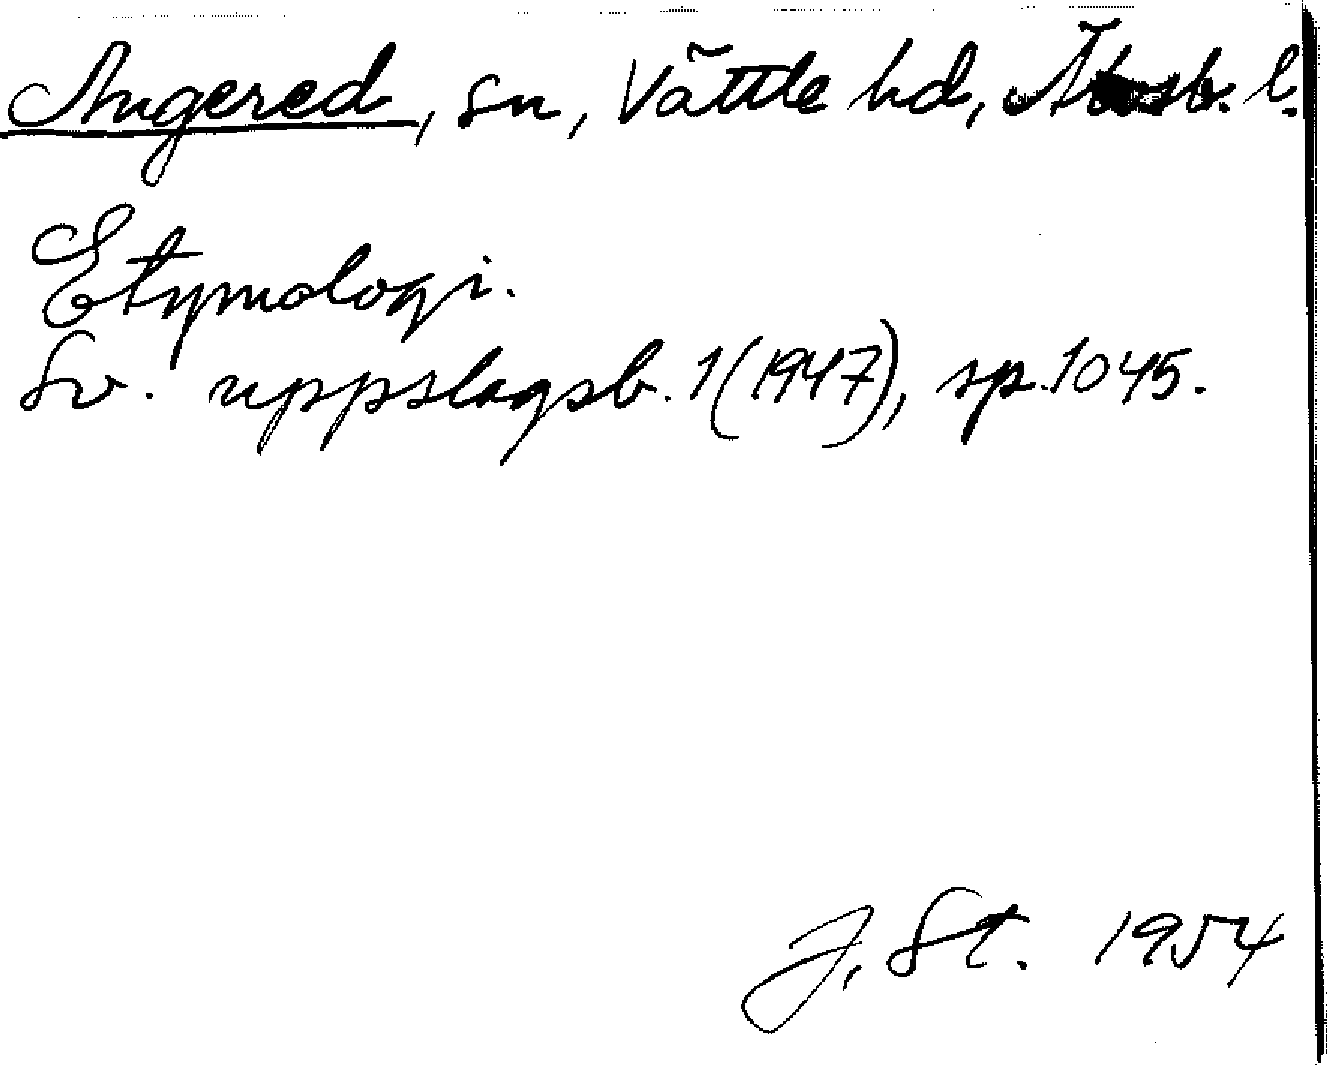 Angered, sn, Vättle hd, Älvsb. l.
Etymologi.
Sv. uppslagsb. 1 (1947), sp. 1045.
J. St. 1954